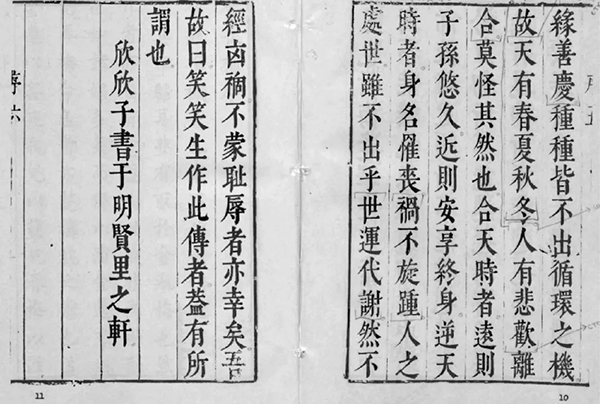 緣善慶種種皆不出循環之機
故天有春夏秋冬人有悲歡離
合莫怪其然也合天時者遠則
子孫悠久近則安享終身逆天
時者身名罹喪禍不旋踵人之
處世雖不出乎世運代謝然不
10
經㐫禍不蒙耻辱者亦幸矣吾
故曰笑笑生作此傳者蓋有所
謂也
欣欣子書于明賢里之軒
11